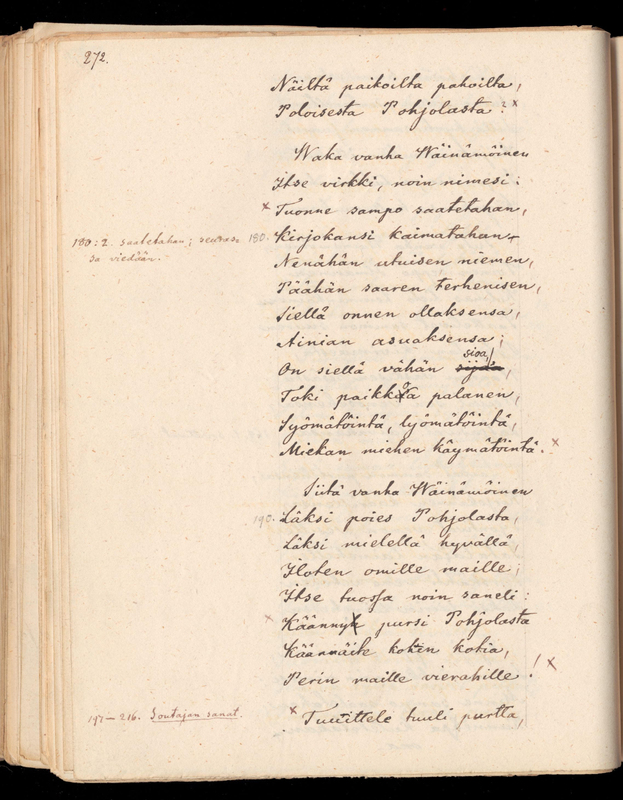 272.
Näiltä paikoilta pahoilta,
Poloisesta Pohjolasta?"
Waka vanha Wäinämöinen
Itse virkki, noin nimesi:
"Tuonne sampo saatetahan,
180:2. saatetahan; seuraas-
sa viedään.
180. Kirjokansi kaimatahan
Nenähän utuisen niemen,
Päähän saaren terhenisen,
Siellä onnen ollaksensa,
Ainian asuaksensa;
On siellä vähän sijda sioa,
Toki paikkoa palanen,
Syömätöintä, lyömätöintä,
Miekan miehen käymätöintä."
Siitä vanha Wäinämöinen
190. Läksi poies Pohjolasta,
Läksi mielellä hyvällä,
Iloten omille maille;
Itse tuossa noin saneli:
"Käänny pursi Pohjolasta
Käännäite kohin kotia,
Perin maille vierahille!"
197—216. Soutajan sanat.
"Tuuittele tuuli purtta,